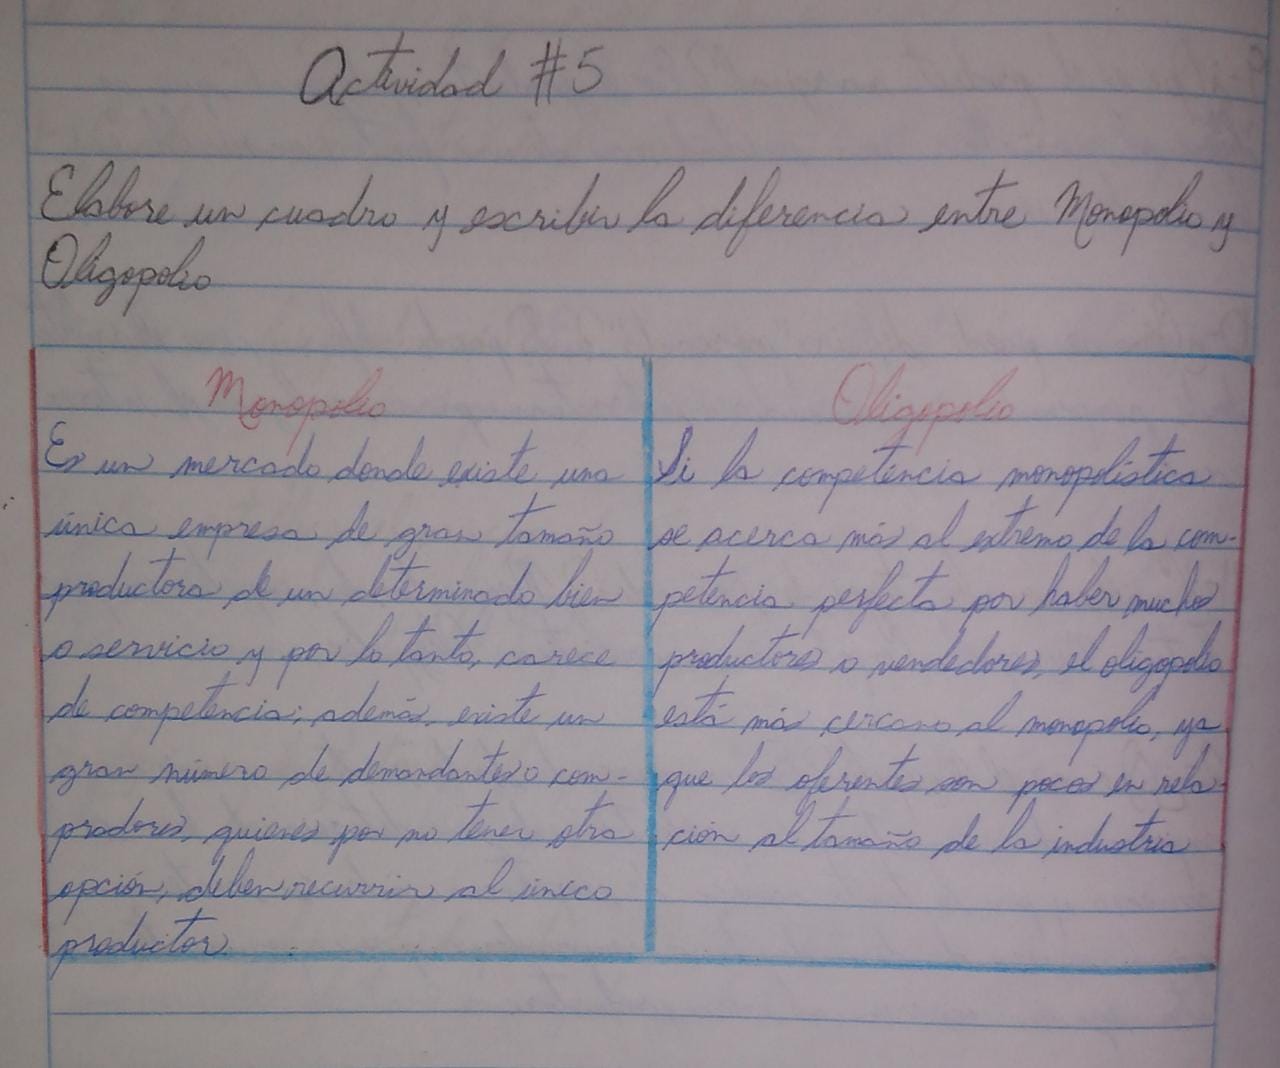 Actividad #5
Elabore un cuadro y escribir la diferencia entre Monopolio y
Oligopolio
Monopolio
Es un mercado donde existe una
única empresa de gran tamaño
productora de un determinado bien
o servicio y por lo tanto, carece
de competencia; además, existe un
gran número de demandantes o com-
pradores, quienes por no tener otra
opción, deben recurrir al único
productor.
Oligopolio
Si la competencia monopolística
se acerca más al extremo de la com-
petencia perfecta por haber muchos
productores o vendedores, el oligopolio
está más cercano al monopolio, ya
que los oferentes son pocos en rela-
ción al tamaño de la industria